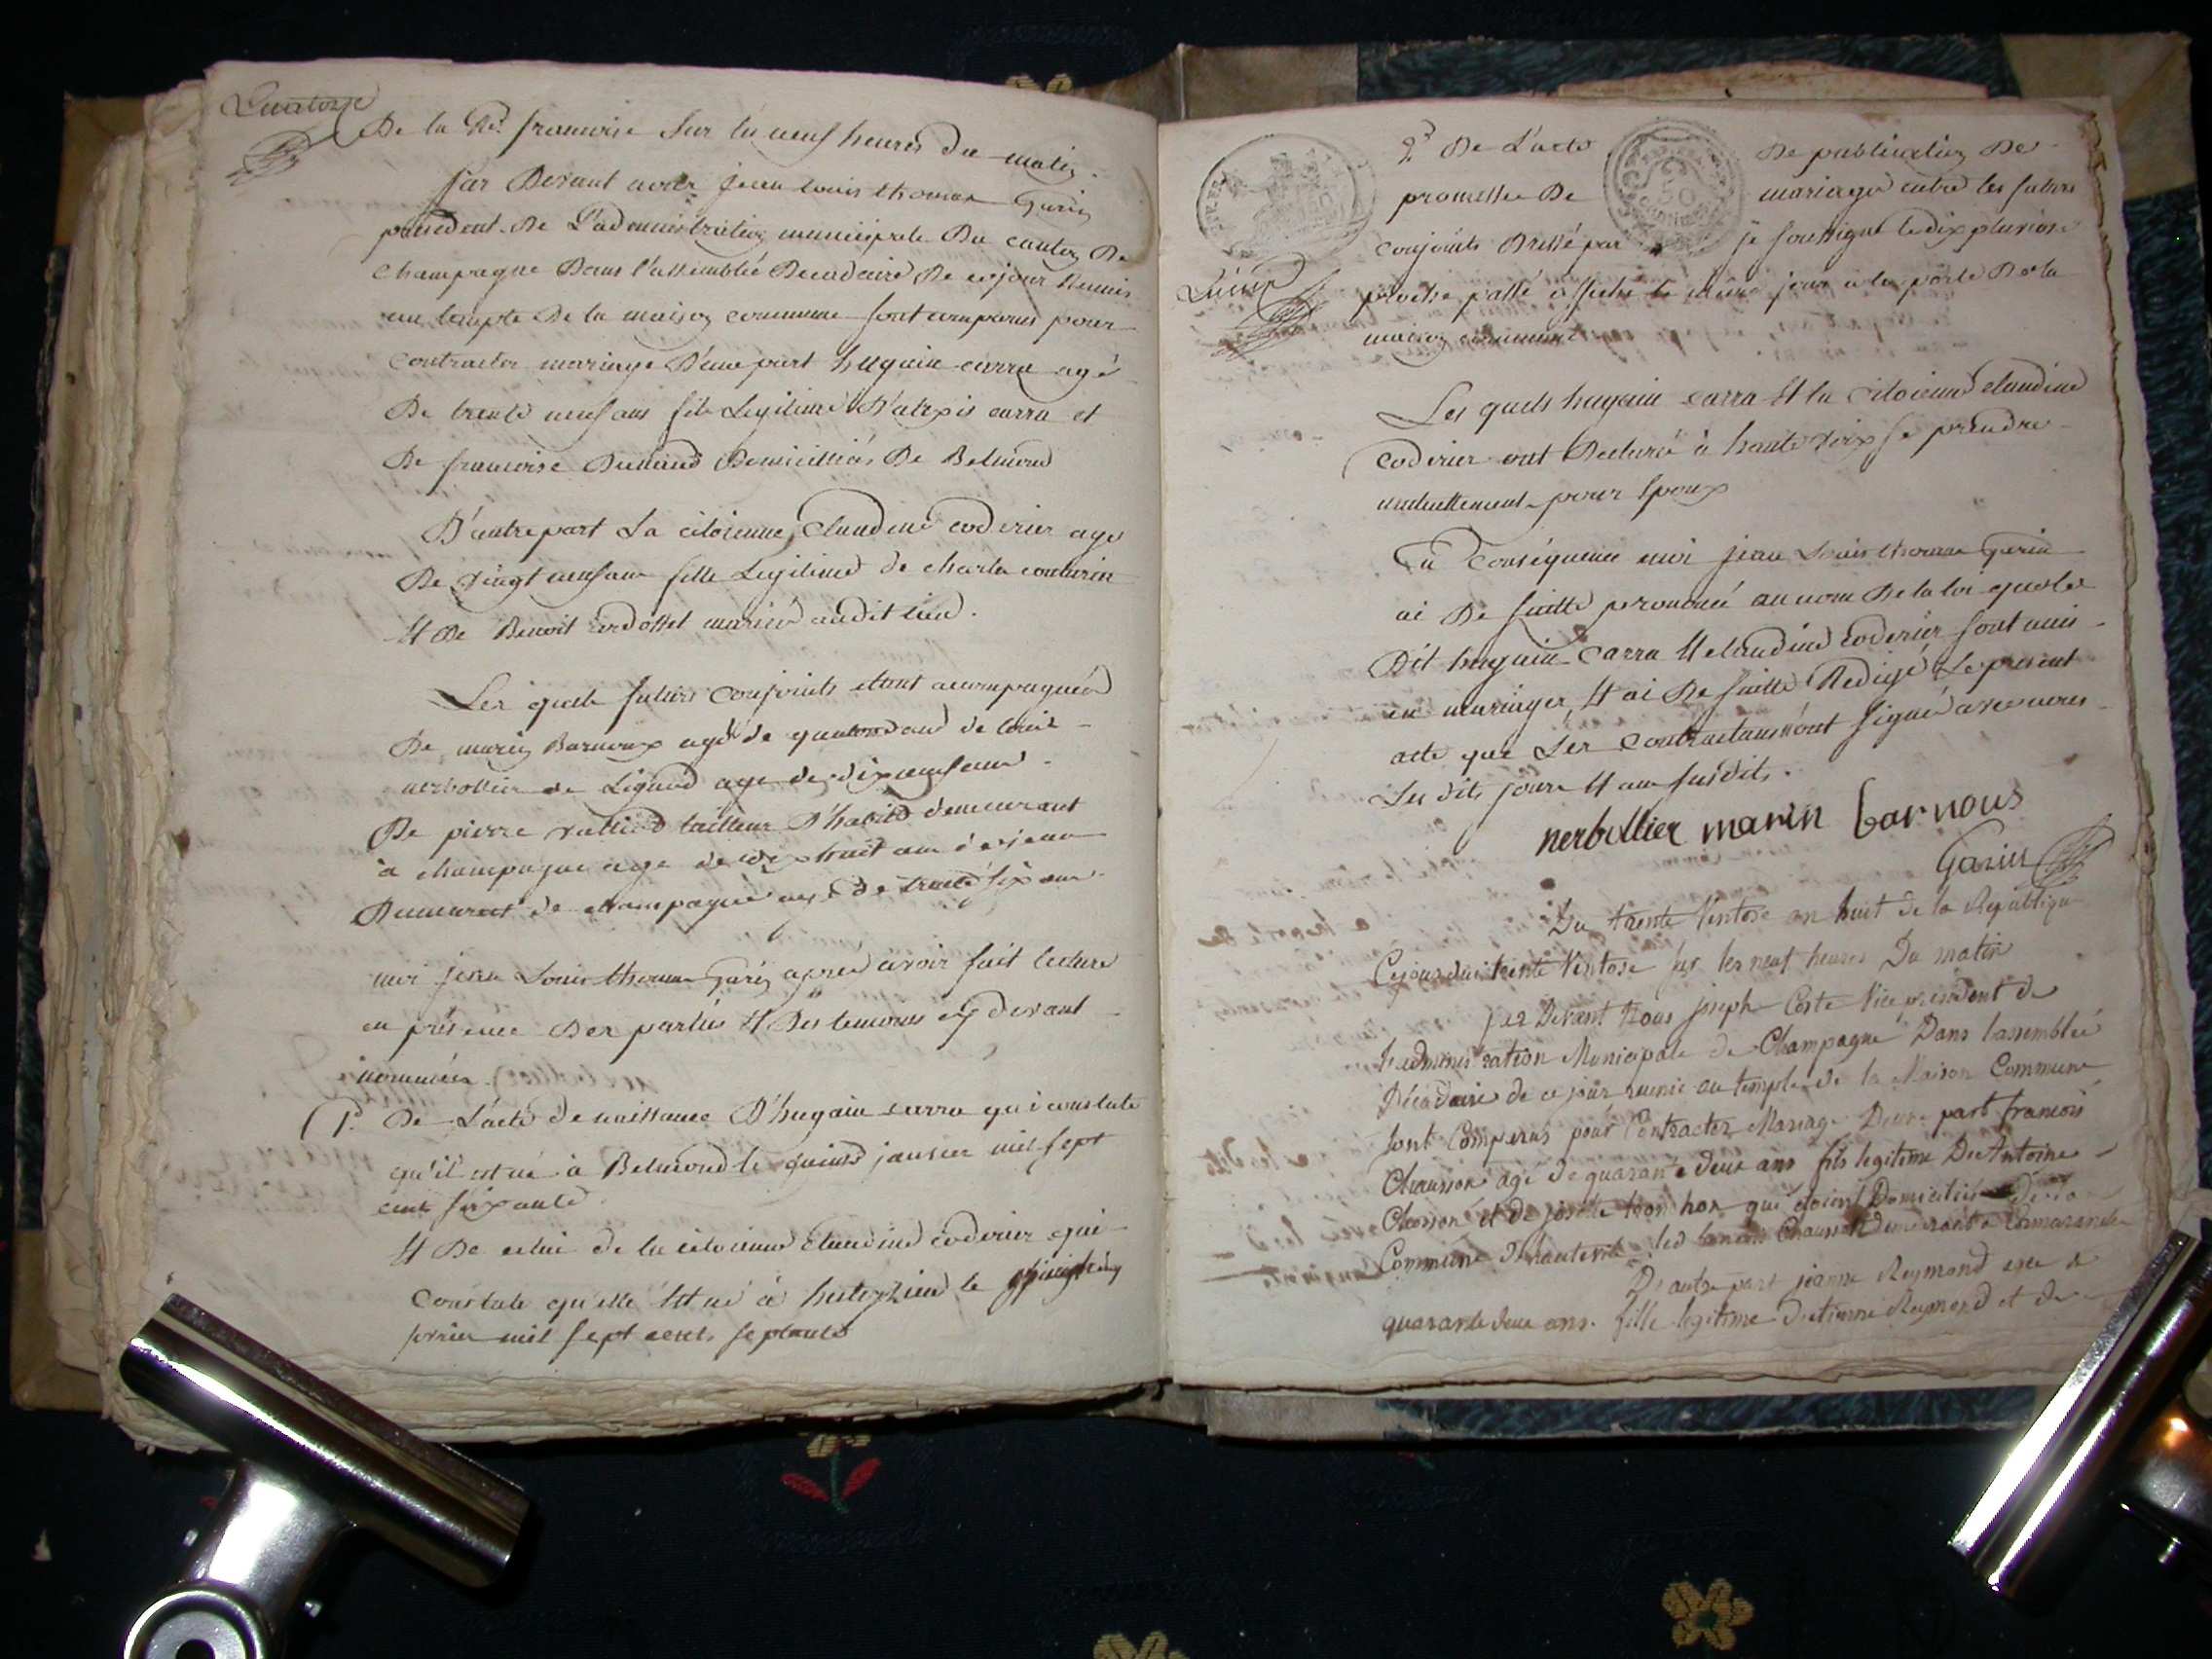 quatorze
De la Rq. francoise sur lu neuf heures du matin.
par Devant nous jean louis thomas Garin
president De L'administration municipale Du canton De
champagne Dans l'assemblée Decadaire De cejour Reunis
au temple De la maison commune sont comparus pour
contracter mariage D'une part hugain carra agé
De trente neuf ans fils Legitime D'alexis carra et
De francoise Dumand Domicilliés De Belmond
D'autre part La citoienne Claudine coderier age
De vingt neuf ans fille Legitime de charle
Et De Benoit mariés audit lieu.
Les quels futurs conjoints etant accompagnés
De marin Barnoux agé de ans de
nerbollier de Lignod age de dix neuf ans
De pierre tailleur D'habits demeurant
à champagne age de dix huit ans jean
Dumarest de champagne agé de trente six ans
moi jean Louis thomas Garin apres avoir fait lecture
en présence Des parties Et Des temoins cy devant
nommées.
1º. De L'acte de naissance D'hugain carra qui constate
qu'il est né à Belmond le quinze janvier mil sept
cent soixante
Et De celui de la citoienne Claudine coderier qui
constate qu'elle Est né à le
mil sept cents septante
2º De L'acte De publication De
promesse De mariage entre les futurs
conjoints Dressé par je soussigné le dix pluviose
proche passé affiché le même jour à la porte De la
maison commune
Les quels hugain carra Et la Citoienne claudine
coderier ont Declaré à haute voix se prendre
mutuellement pour Epoux
En Conséquence moi jean Louis thomas Garin
ai De suitte prononcé au nom De la loi que les
Dit hugain Carra Et claudine coderier sont unis
en mariages, Et ai De suitte Redigé Le present
acte que Les Contractans n'ont signé avec nous
Les dits jours Et an susdits.
nerbollier marin barnous
Garin
Du trente Ventose an huit de la Republique
Cejourdui trente Ventose sur les neuf heures Du matin
par Devant Nous joseph Coste Vice president de
l'administration Municipale de Champagne Dans lassemblée
Décadaire de ce jour reunie au temple de la Maison Commune
sont Comparus pour Contracter Mariage Dune part francois
Chausson agé de quarante deux ans fils legitime De Antoine
Chosson et de josette qui étoient Domiciliés de la
Commune D'hauteville led francois Chausson demeurant a
D'autre part jeanne Reymond agee de
quarante deux ans. fille legitime d'etienne Reymond et de